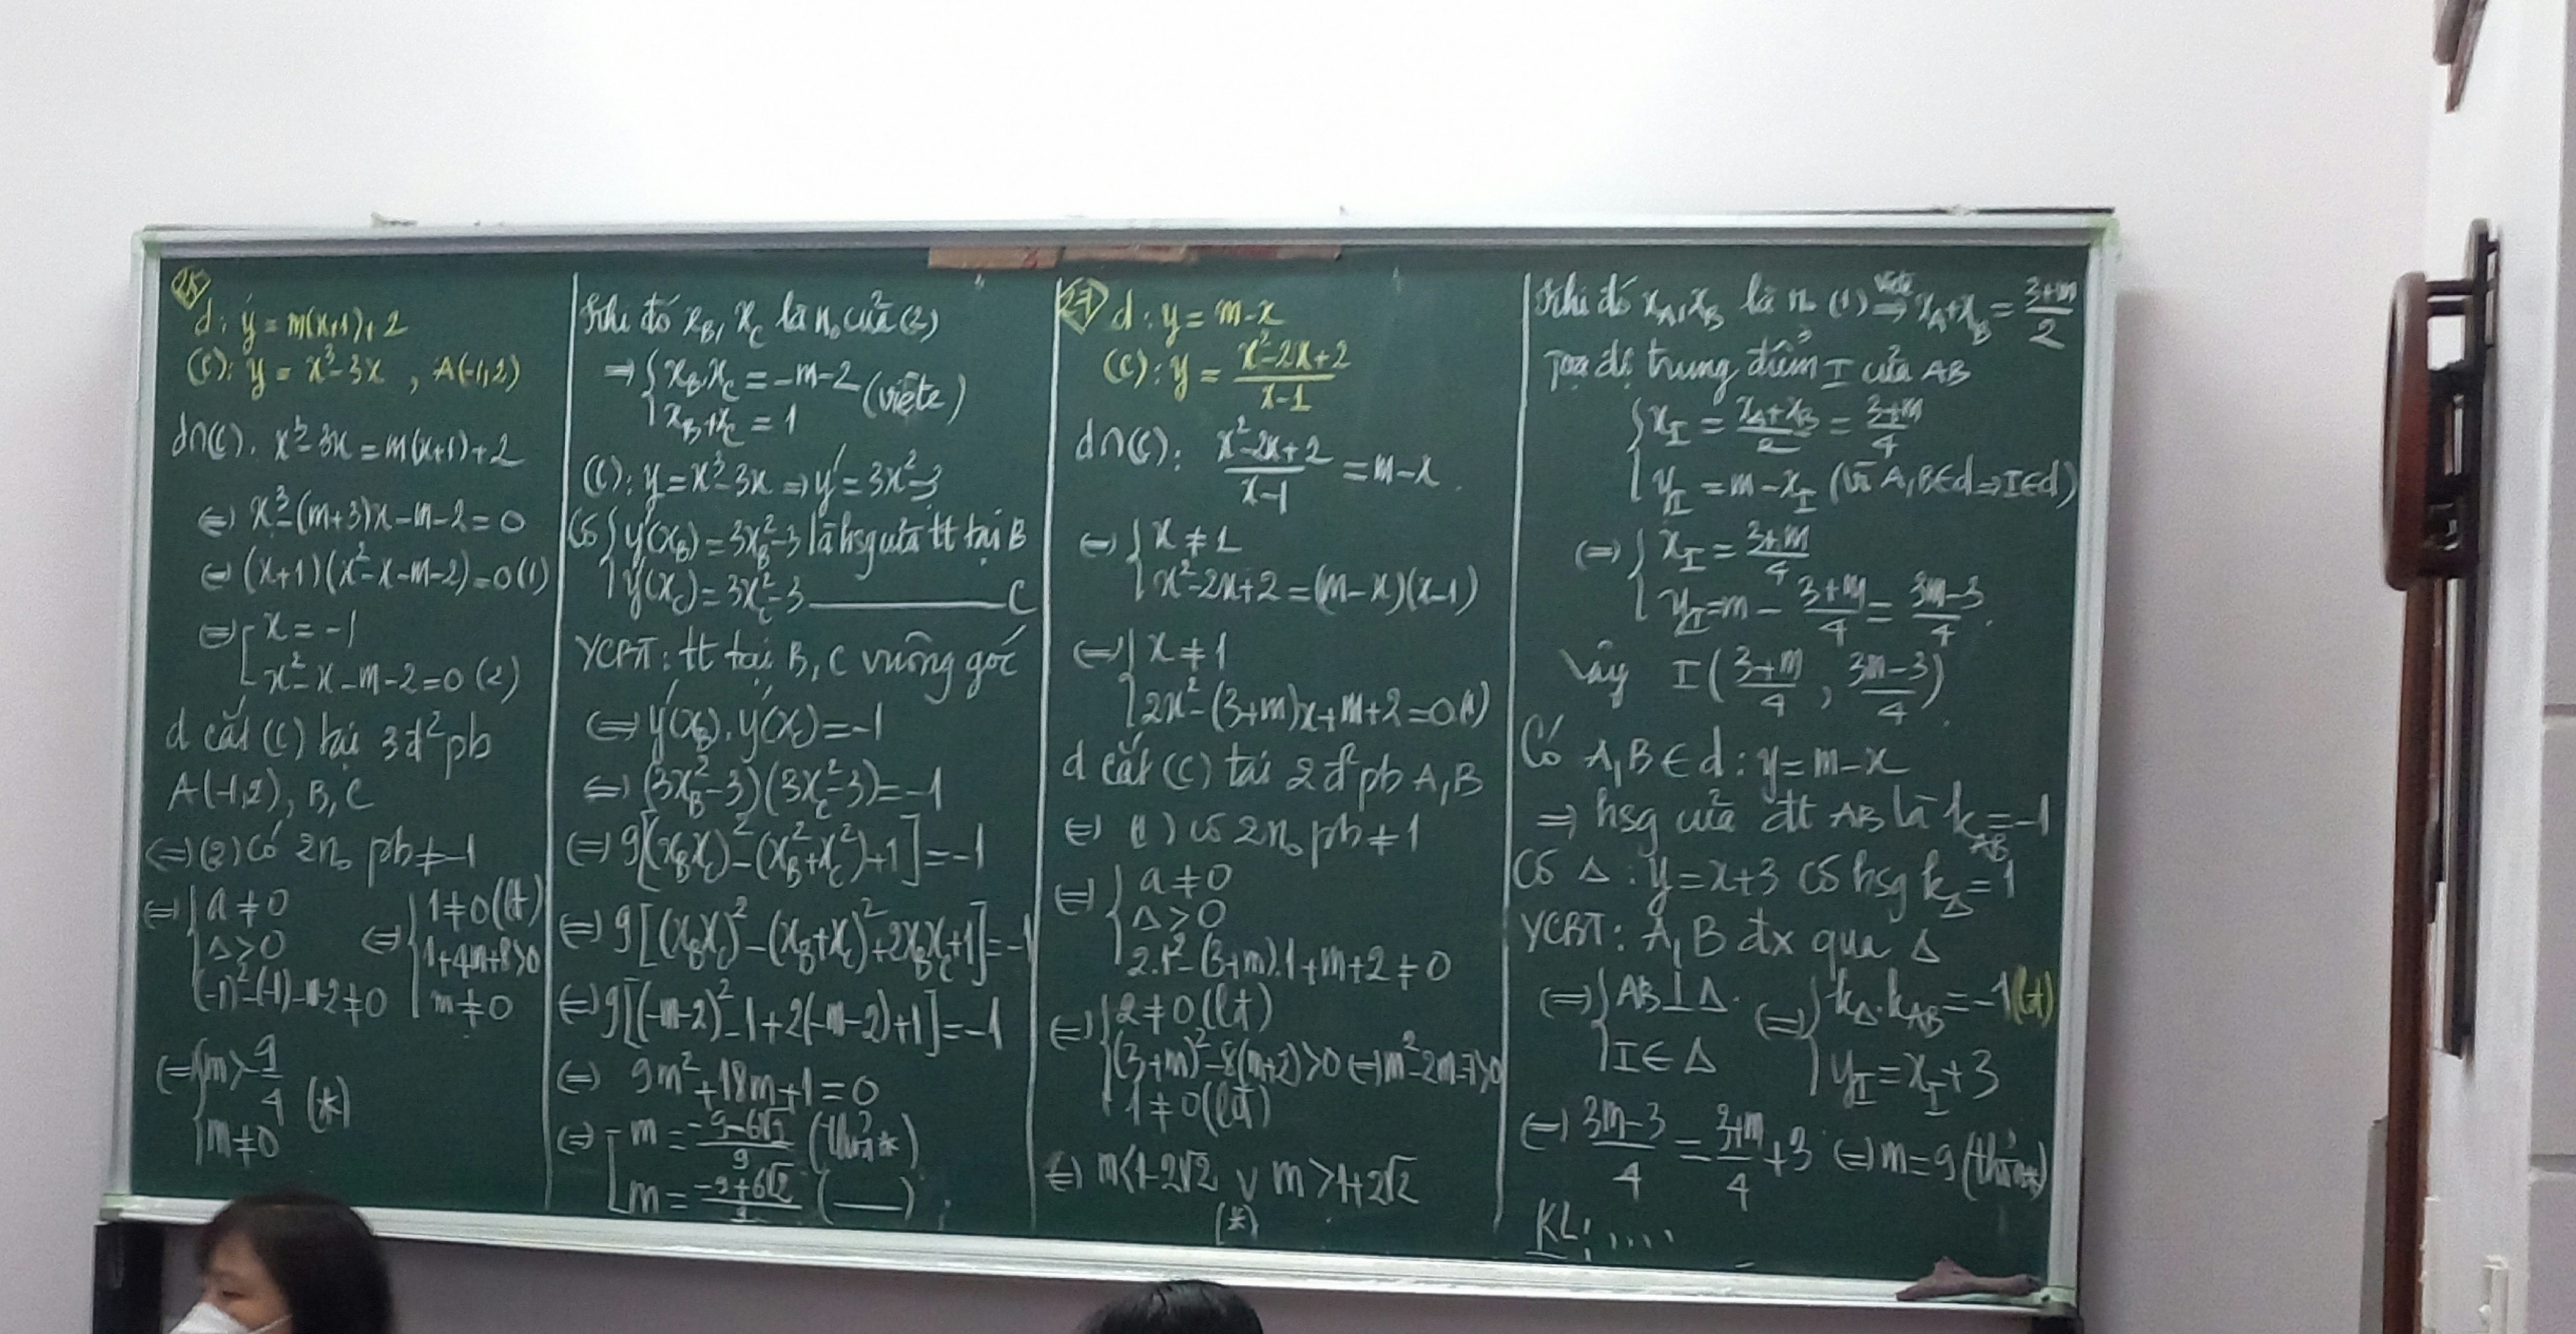 25
d: y = m(x+1)+2
(C): y = x³-3x , A(-1,2)
d∩(C). x³-3x = m(x+1)+2
⇔ x³-(m+3)x-m-2=0
⇔ (x+1)(x²-x-m-2)=0 (1)
⇔ [ x = -1
x²-x-m-2=0 (2)
d cắt (C) tại 3đ² pb
A(-1,2), B, C
⇔ (2) có 2n₀ pb ≠ -1
⇔ { a ≠ 0 ⇔ { 1≠0 (lđ)
Δ>0 1+4m+8>0
(-1)²-(-1)-m-2≠0 m≠0
⇔ { m > 9/4 (*)
m≠0
Khi đó x_B, x_C là n₀ của (2)
⇒ { x_B.x_C = -m-2 (viète)
x_B+x_C = 1
(C): y=x³-3x ⇒ y'=3x²-3
Có { y'(x_B) = 3x_B²-3 là hsg của tt tại B
y'(x_C) = 3x_C²-3 ———— C
YCBT: tt tại B, C vuông góc
⇔ y'(x_B).y'(x_C) = -1
⇔ (3x_B²-3)(3x_C²-3) = -1
⇔ 9[(x_Bx_C)²-(x_B²+x_C²)+1] = -1
⇔ 9[(x_Bx_C)²-(x_B+x_C)²+2x_Bx_C+1] = -1
⇔ 9[(-m-2)²-1+2(-m-2)+1] = -1
⇔ 9m²+18m+1=0
⇔ [ m = (-9-6√2)/9 (thỏa *)
m = (-9+6√2)/9 (——)
27
d: y = m-x
(C): y = (x²-2x+2)/(x-1)
d∩(C): (x²-2x+2)/(x-1) = m-x
⇔ { x ≠ 1
x²-2x+2 = (m-x)(x-1)
⇔ { x ≠ 1
2x²-(3+m)x+m+2=0 (1)
d cắt (C) tại 2đ² pb A, B
⇔ (1) có 2n₀ pb ≠ 1
⇔ { a ≠ 0
Δ>0
2.1²-(3+m).1+m+2 ≠ 0
⇔ { 2≠0 (lđ)
(3+m)²-8(m+2)>0 ⇔ m²-2m-7>0
1≠0 (lđ)
⇔ m<1-2√2 ∨ m>1+2√2
(*)
Khi đó x_A, x_B là n₀ (1) ⇒ viète x_A+x_B = (3+m)/2
Tọa độ trung điểm I của AB
{ x_I = (x_A+x_B)/2 = (3+m)/4
y_I = m-x_I (vì A, B∈d ⇒ I∈d)
⇔ { x_I = (3+m)/4
y_I = m - (3+m)/4 = (3m-3)/4
Vậy I((3+m)/4 , (3m-3)/4)
Có A, B ∈ d: y = m-x
⇒ hsg của đt AB là k_AB = -1
Có Δ: y=x+3 có hsg k_Δ = 1
YCBT: A, B đx qua Δ
⇔ { AB⊥Δ ⇔ { k_Δ.k_AB = -1 (lđ)
I∈Δ y_I = x_I+3
⇔ (3m-3)/4 = (3+m)/4 + 3 ⇔ m=9 (thỏa *)
KL: ....